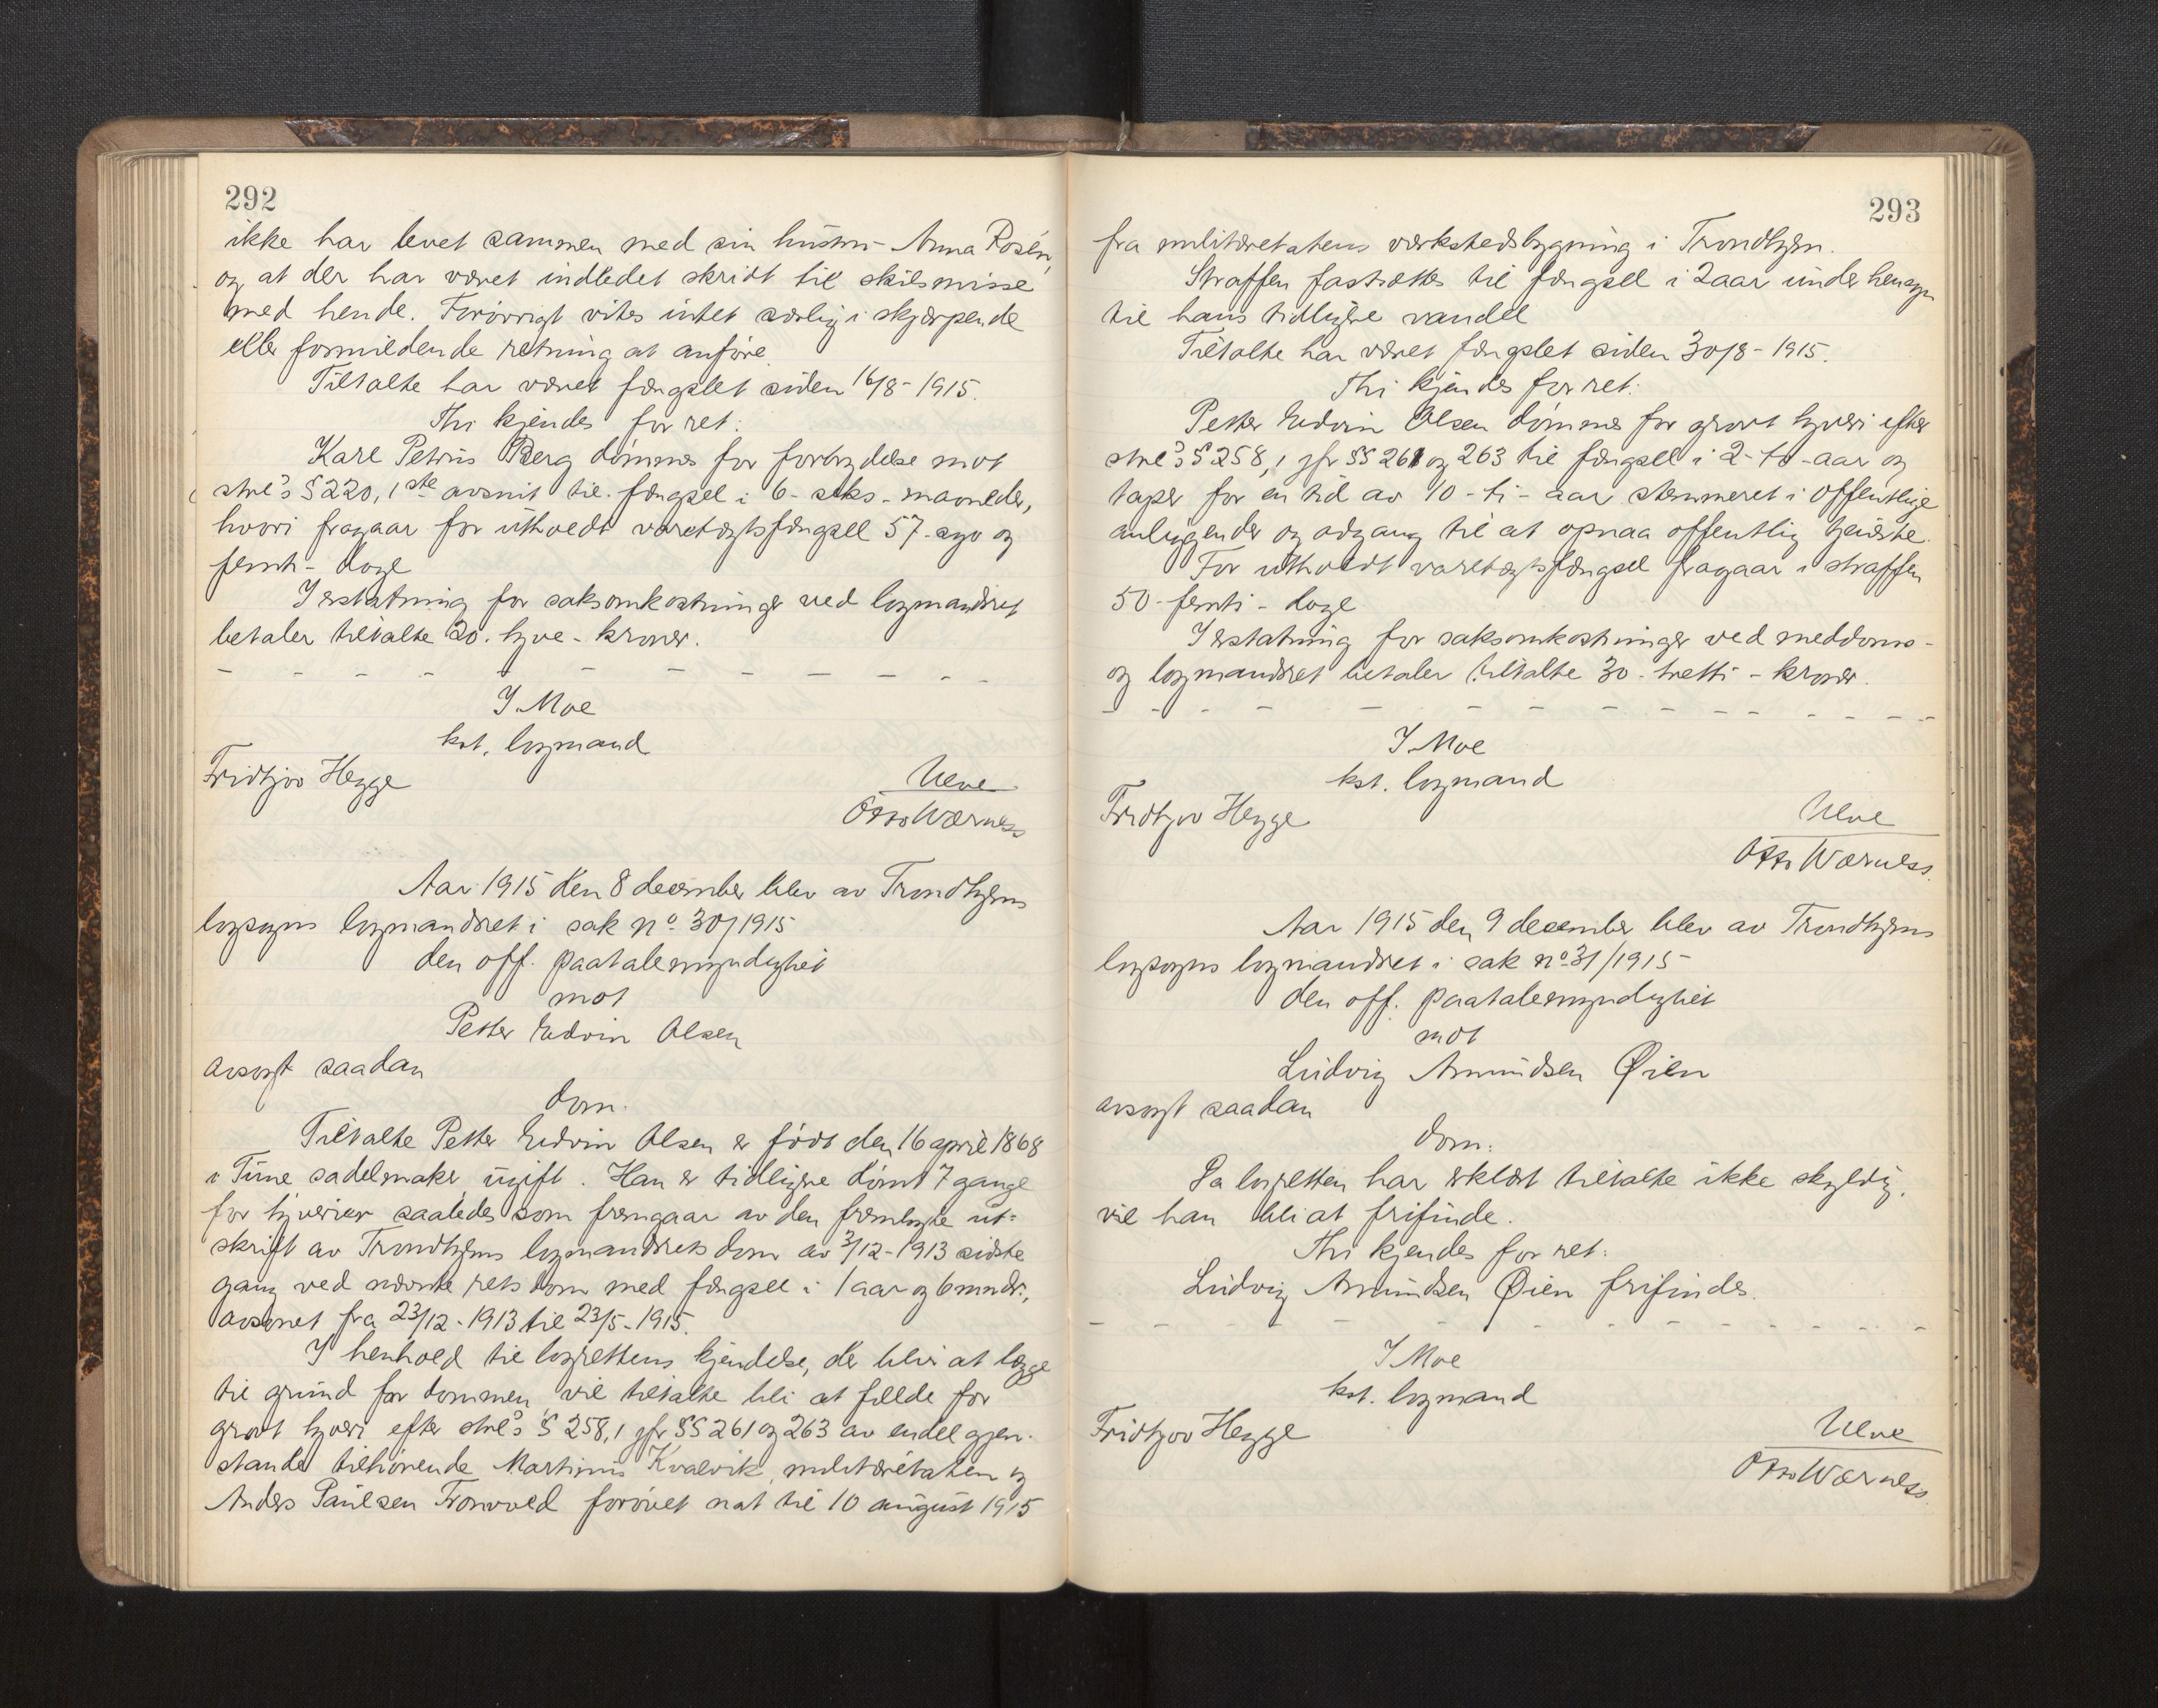 292
ikke har levet sammen med sin hustru - Anna Rosén,
og at der har været indledet skridt til skilsmisse
med hende. Forøvrigt vites intet særlig i skjærpende
eller formildende retning at anføre.
Tiltalte har været fængslet siden 16/8 - 1915.
Thi kjendes for ret:
Karl Petrus Berg dømmes for forbrydelse mot
strl's § 220, 1ste avsnit til fængsel i 6 - seks - maaneder,
hvori fragaar for utholdt varetægtsfængsel 57 - syv og
femti - dage
I erstatning for saksomkostninger ved lagmandsret
betaler tiltalte 20 - tyve - kroner.
I. Moe
kst. lagmand
Fridtjov Hegge
Ulve
Otto Wærness
Aar 1915 den 8 december blev av Trondhjems
lagsogns lagmandsret i sak no. 30/1915
den off. paatalemyndighet
mot
Petter Edvin Olsen
avsagt saadan
dom.
Tiltalte Petter Edvin Olsen er født den 16 april 1868
i Tune sadelmaker, ugift. Han er tidligere dømt 7 gange
for tyverier saaledes som fremgaar av den fremlagte ut-
skrift av Trondhjems lagmandsrets dom av 3/12 - 1913 sidste
gang ved nævnte rets dom med fængsel i 1 aar og 6 mndr.,
avsonet fra 23/12 - 1913 til 23/5 - 1915.
I henhold til lagrettens kjendelse, der blir at lægge
til grund for dommen, vil tiltalte bli at fælde for
grovt tyveri efter strl's § 258,1 jfr §§ 261 og 263 av endel gjen-
stande tilhørende Martinus Kvalvik, militæretaten og
Anders Paulsen Tronvold forøvet nat til 10 august 1915
293
fra militæretatens verkstedsbygning i Trondhjem.
Straffen fastsættes til fængsel i 2 aar under hensyn
til hans tidligere vandel
Tiltalte har været fængslet siden 30/8 - 1915.
Thi kjendes for ret:
Petter Edvin Olsen dømmes for grovt tyveri efter
strl's § 258,1 jfr §§ 261 og 263 til fængsel i 2 - to - aar og
taper for en tid av 10 - ti - aar stemmeret i offentlige
anliggender og adgang til at opnaa offentlig tjeneste.
For utholdt varetægtsfængsel fragaar i straffen
50 - femti - dage
I erstatning for saksomkostninger ved meddoms-
og lagmandsret betaler tiltalte 30 - tretti - kroner.
I. Moe
kst. lagmand
Fridtjov Hegge
Ulve
Otto Wærness.
Aar 1915 den 9 december blev av Trondhjems
lagsogns lagmandsret i sak no 31/1915
den off. paatalemyndighet
mot
Ludvig Amundsen Øien
avsagt saadan
dom:
Da lagretten har erklært tiltalte ikke skyldig,
vil han bli at frifinde.
Thi kjendes for ret:
Ludvig Amundsen Øien frifindes.
I. Moe
kst. lagmand
Fridtjov Hegge
Ulve
Otto Wærness.